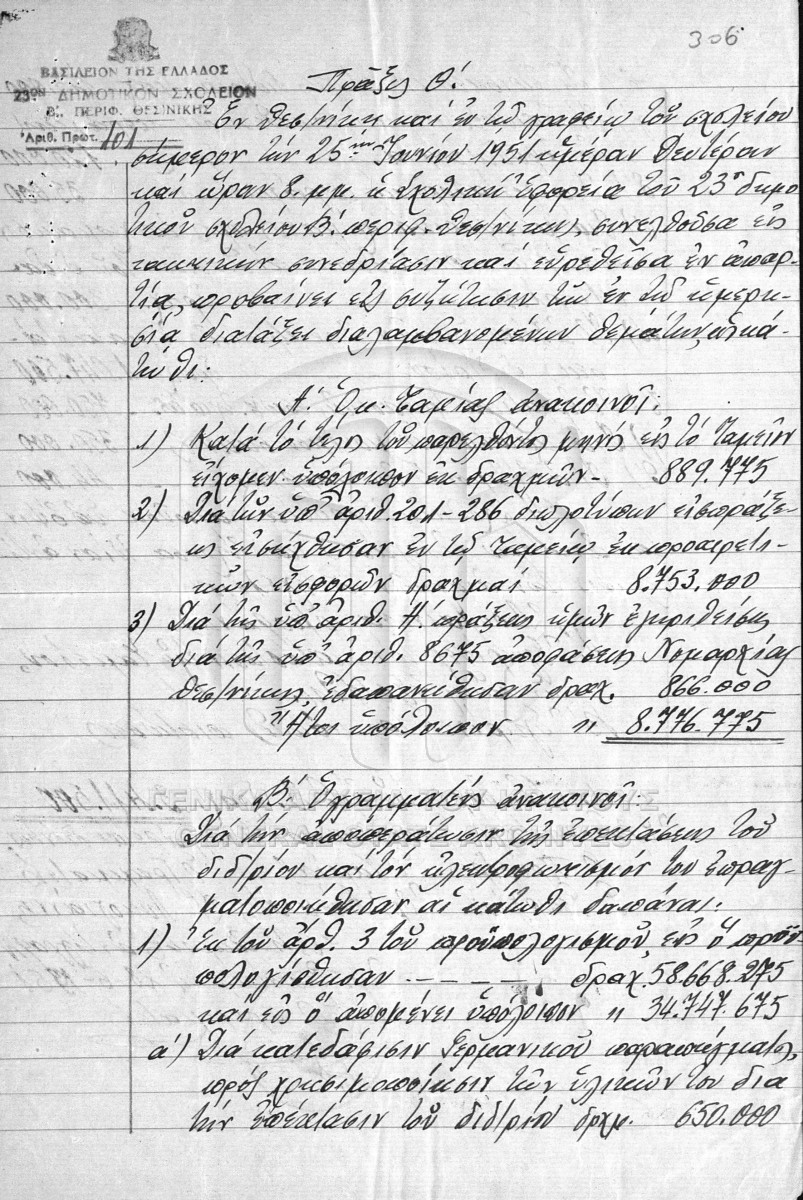 306
ΒΑΣΙΛΕΙΟΝ ΤΗΣ ΕΛΛΑΔΟΣ
23ΟΝ ΔΗΜΟΤΙΚΟΝ ΣΧΟΛΕΙΟΝ
Β. ΠΕΡΙΦ. ΘΕΣ)ΝΙΚΗΣ
Ἀριθ. Πρωτ. 101
Πρᾶξις Θ΄.
Ἐν Θεσ)νίκῃ καὶ ἐν τῷ γραφείῳ τοῦ σχολείου
σήμερον τὴν 25ην Ἰουνίου 1951 ἡμέραν Δευτέραν
καὶ ὥραν 8 μ.μ. ἡ Σχολικὴ Ἐφορεία τοῦ 23ου δημο
τικοῦ σχολείου Β΄. περιφ. Θεσ)νίκης, συνελθοῦσα εἰς
τακτικὴν συνεδρίασιν καὶ εὑρεθεῖσα ἐν ἀπαρ-
τίᾳ, προβαίνει εἰς συζήτησιν τῶν ἐν τῇ ἡμερη-
σίᾳ διατάξει διαλαμβανομένων θεμάτων, ὡς κά-
τωθι:
Α΄. Ὁ κ. Ταμίας ἀνακοινοῖ:
1) Κατὰ τὸ τέλος τοῦ παρελθόντος μηνὸς εἰς τὸ Ταμεῖον
εἴχομεν ὑπόλοιπον ἐκ δραχμῶν - 889.775
2) Διὰ τῶν ὑπ' ἀριθ. 201-286 διπλοτύπων εἰσπράξε-
ως εἰσήχθησαν ἐν τῷ Ταμείῳ ἐκ προαιρετι-
κῶν εἰσφορῶν δραχμαὶ 8.753.000
3) Διὰ τῆς ὑπ' ἀριθ. Η΄. πράξεως ἡμῶν ἐγκριθείσης
διὰ τῆς ὑπ' ἀριθ. 8675 ἀποφάσεως Νομαρχίας
Θεσ)νίκης, ἐδαπανήθησαν δραχ. 866.000
Ἤτοι ὑπόλοιπον " 8.776.775
Β΄. Ὁ γραμματεὺς ἀνακοινοῖ:
Διὰ τὴν ἀποπεράτωσιν τῆς ἐπεκτάσεως τοῦ
διδ)ρίου καὶ τὸν ἠλεκτροφωτισμόν του ἐπραγ-
ματοποιήθησαν αἱ κάτωθι δαπάναι:
1) Ἐκ τοῦ ἄρθ. 3 τοῦ προϋπολογισμοῦ, εἰς ὃ προϋ-
πολογίσθησαν - - - - δραχ. 58.668.275
καὶ εἰς ὃ ἀπομένει ὑπόλοιπον " 34.747.675
α΄) Διὰ κατεδάφισιν Γερμανικοῦ παραπήγματος,
πρὸς χρησιμοποίησιν τῶν ὑλικῶν του διὰ
τὴν ἐπέκτασιν τοῦ διδ)ρίου δρχμ. 650.000